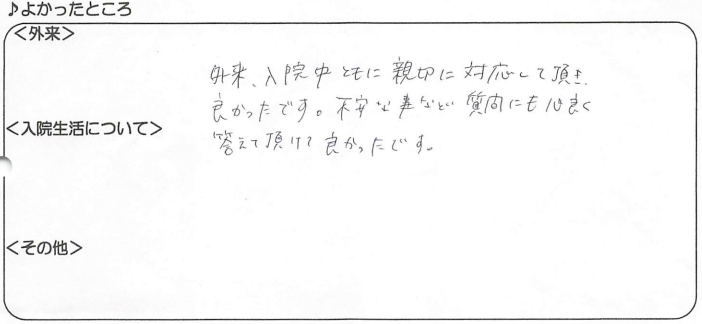 ♪よかったところ
＜外来＞
外来、入院中ともに親切に対応して頂き、
良かったです。不安な事など質問にも心良く
＜入院生活について＞
答えて頂けて良かったです。
＜その他＞